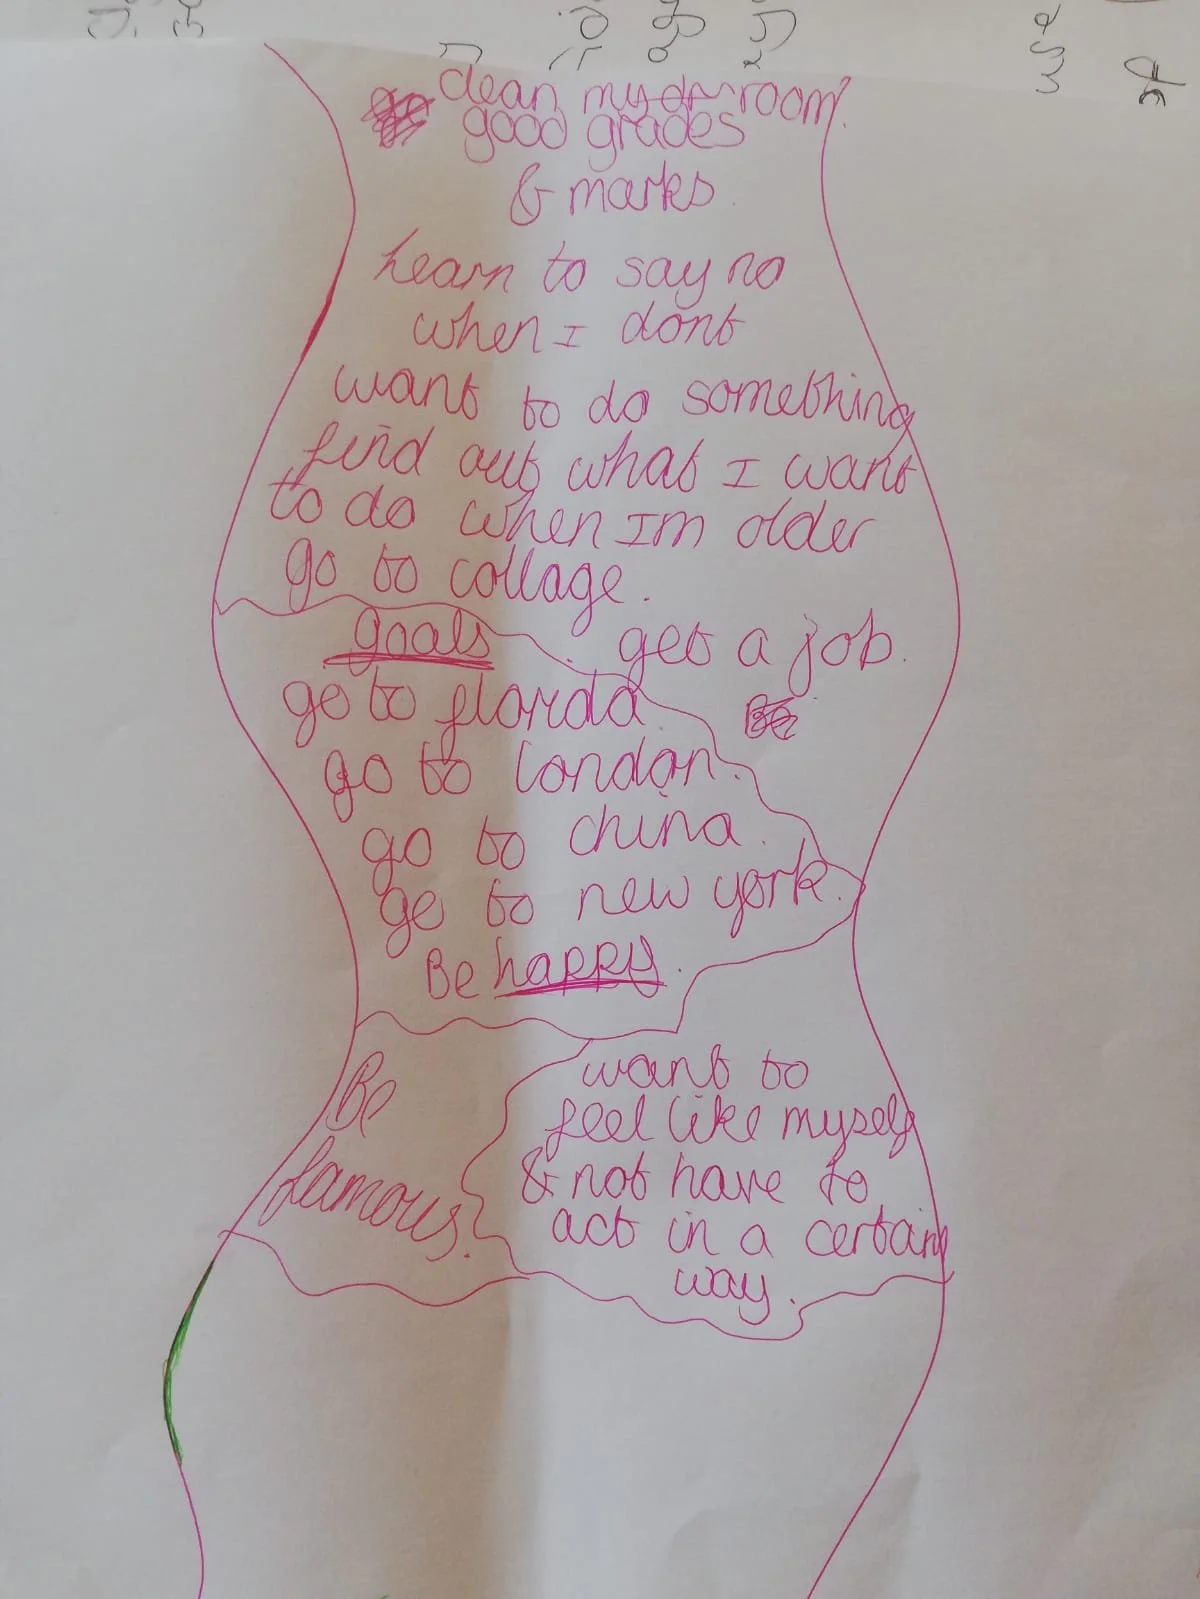 clean my room.
good grades
& marks.
Learn to say no
when I dont
want to do something
find out what I want
to do when Im older
go to collage.
goals
get a job.
go to florida.
go to london.
go to china.
go to new york.
Be happy.
Be
famous.
want to
feel like myself
& not have to
act in a certain
way.